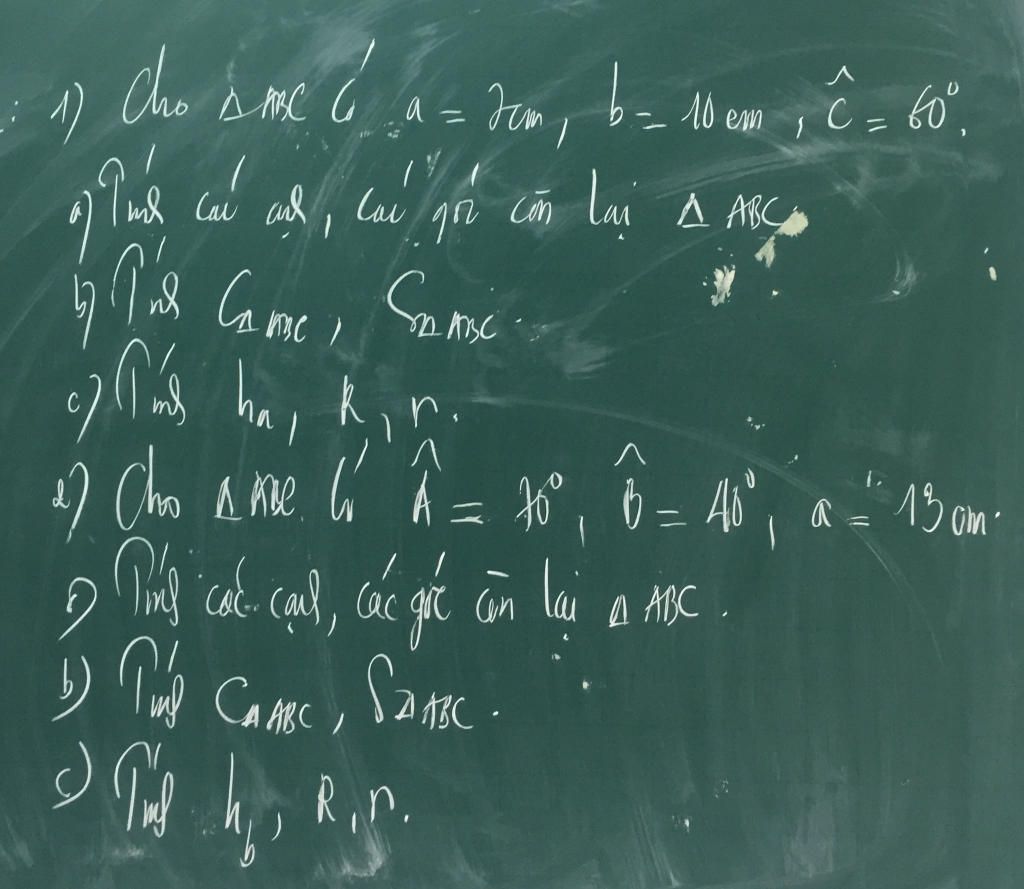 1) Cho Δ ABC có a = 7cm, b = 10 cm, Ĉ = 60°.
a) Tính các cạnh, các góc còn lại Δ ABC.
b) Tính CΔABC, SΔABC.
c) Tính ha, R, r.
2) Cho Δ ABC có Â = 70°, B̂ = 40°, a = 13 cm.
a) Tính các cạnh, các góc còn lại Δ ABC.
b) Tính CΔABC, SΔABC.
c) Tính hb, R, r.